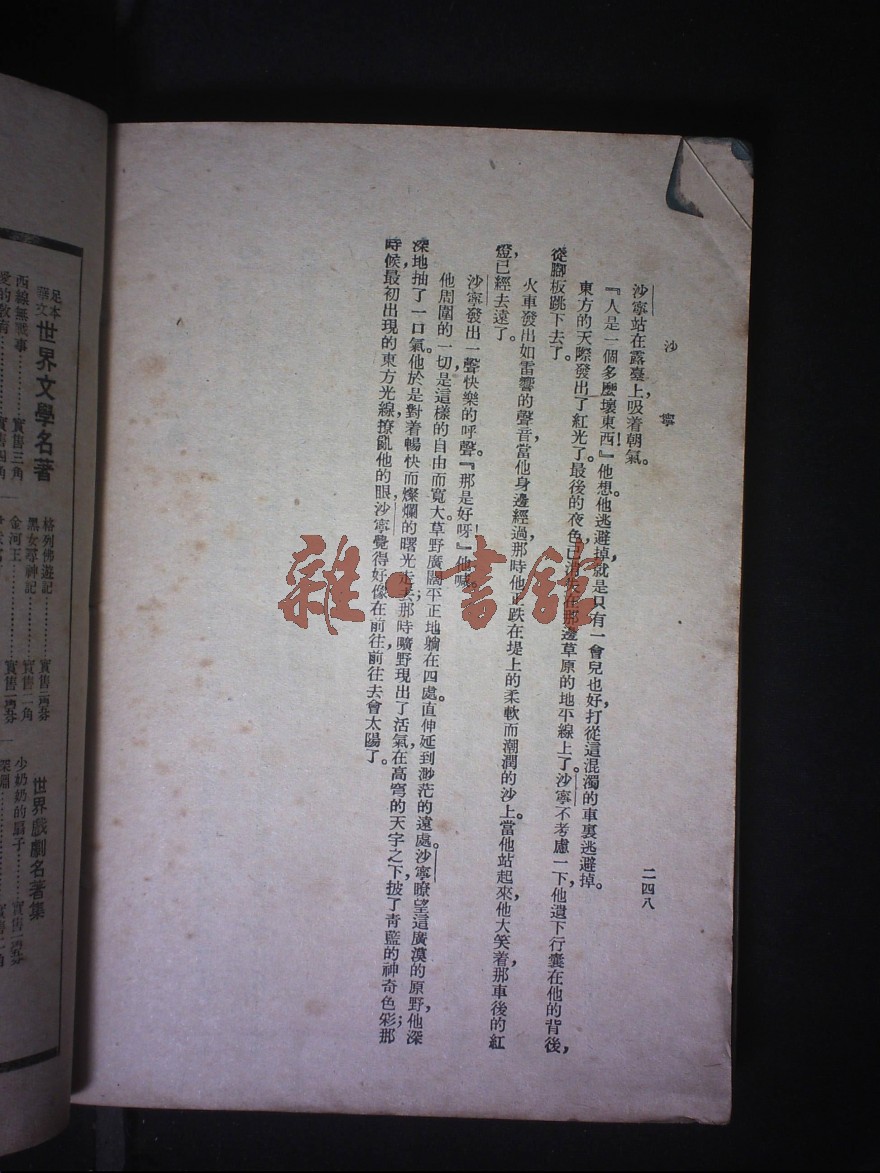 沙寧
二四八
沙寧站在露臺上，吸着朝氣。
『人是一個多麽壞東西！』他想。他逃避掉，就是只有一會兒也好，打從這混濁的車裏逃避掉。
東方的天際發出了紅光了。最後的夜色已消失在那邊草原的地平線上了。沙寧不考慮一下，他遺下行囊在他的背後，
從腳板跳下去了。
火車發出如雷響的聲音，當他身邊經過，那時他正跌在堤上的柔軟而潮潤的沙上。當他站起來，他大笑着，那車後的紅
燈，已經去遠了。
沙寧發出一聲快樂的呼聲。『那是好呀！』他喊。
他周圍的一切是這樣的自由而寬大。草野廣闊平正地躺在四處。直伸延到渺茫的遠處。沙寧瞭望這廣漠的原野，他深
深地抽了一口氣。他於是對着暢快而燦爛的曙光走去；那時曠野現出了活氣，在高穹的天宇之下，披了青藍的神奇色彩；那
時候，最初出現的東方光線，撩亂他的眼，沙寧覺得好像在前往，前往去會太陽了。
足本
華文
世界文學名著
西線無戰事…………實售三角
愛的教育…………實售四角
格列佛遊記…………實售一角
黑女尋神記…………實售二角
金河王…………實售
世界戲劇名著集
少奶奶的扇子…………實售
雜·書館